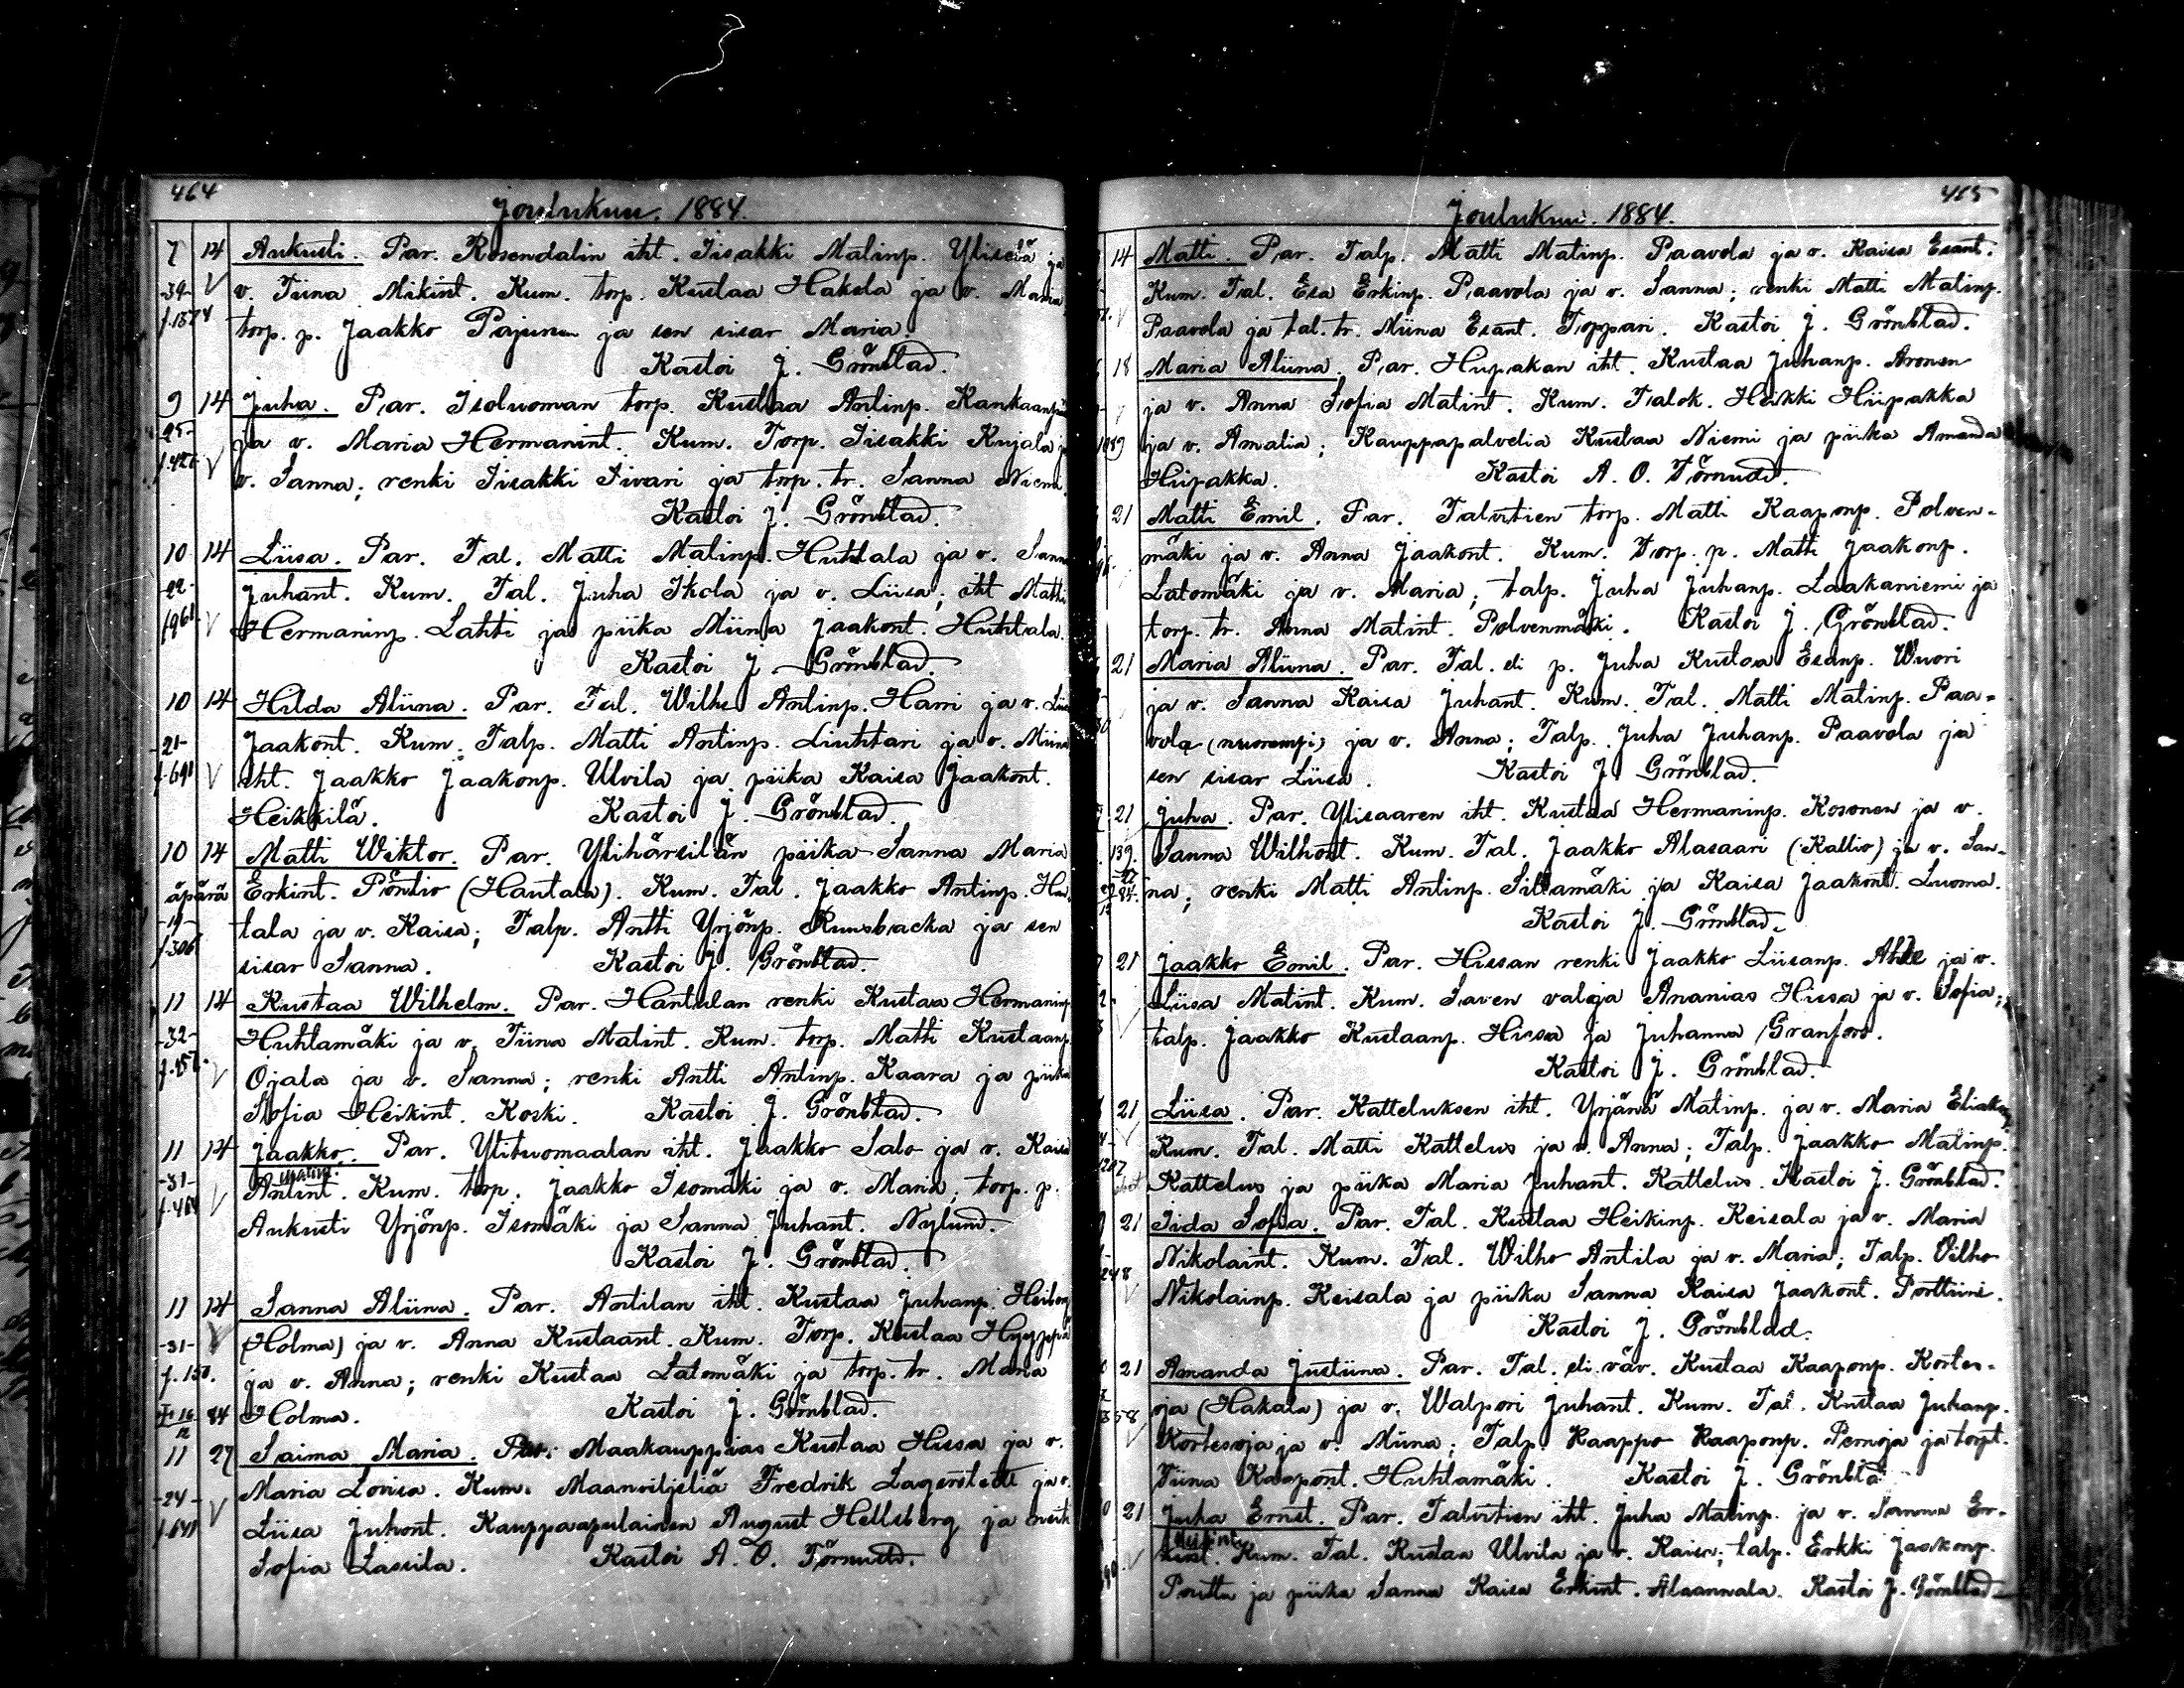 464
Joulukuu. 1884.
7 14 Aukusti. Par. Rosendalin iht. Iisakki Matinp. Yliselä ja
-39- V v. Tiina Mikint. Kum. torp. Kustaa Hakola ja v. Maria,
torp. p. Jaakko Pajunen ja sen sisar Maria.
Kastoi J. Grönblad.
9 14 Juha. Par. Isoluoman torp. Kustaa Antinp. Kankaanpää
-25- ja v. Maria Hermanint. Kum. Torp. Iisakki Kujala ja
V v. Sanna; renki Iisakki Sivari ja torp. tr. Sanna Niemi.
Kastoi J. Grönblad.
10 14 Liisa. Par. Tal. Matti Matinp. Huhtala ja v. Sanna
-22- Juhant. Kum. Tal. Juha Ikola ja v. Liisa; iht Matti
V Hermaninp. Lahti ja piika Miina Jaakont. Huhtala.
Kastoi J. Grönblad.
10 14 Hilda Aliina. Par. Tal. Wilho Antinp. Harri ja v. Liisa
-21- Jaakont. Kum. Talp. Matti Antinp. Liuhtari ja v. Miina
f. 641 V iht. Jaakko Jaakonp. Ulvila ja piika Kaisa Jaakont.
Heikkilä. Kastoi J. Grönblad.
10 14 Matti Wiktor. Par. Ylihärsilän piika Sanna Maria
äpärä Erkint. Pöntiö (Hautala). Kum. Tal. Jaakko Antinp. Hau-
-19- tala ja v. Kaisa; Talp. Antti Yrjönp. Runsbacka ja sen
f. 306 sisar Sanna. Kastoi J. Grönblad.
11 14 Kustaa Wilhelm. Par. Hantulan renki Kustaa Hermaninp.
-32- Huhtamäki ja v. Tiina Matint. Kum. torp. Matti Kustaanp.
V Ojala ja v. Sanna; renki Antti Antinp. Kaara ja piika
Sofia Heikint. Koski. Kastoi J. Grönblad.
11 14 Jaakko. Par. Ylituomaalan iht. Jaakko Salo ja v. Kaisa
-31- Antint. Kum. torp. Jaakko Isomäki ja v. Maria; torp. p.
f. 464 V Aukusti Yrjönp. Isomäki ja Sanna Juhant. Nylund.
Kastoi J. Grönblad.
11 14 Sanna Aliina. Par. Antilan iht. Kustaa Juhanp. Heiberg
-31- V (Holma) ja v. Anna Kustaant. Kum. Torp. Kustaa Hyyppä
f. 150. ja v. Anna; renki Kustaa Latomäki ja torp. tr. Maria
84 Holma. Kastoi J. Grönblad.
11 27 Saima Maria. Par. Maakauppias Kustaa Hissa ja v.
-24- V Maria Lovisa. Kum. Maanviljeliä Fredrik Lagerstedt ja v.
Liisa Juhont. Kauppaapulainen August Hellsberg ja neiti
Sofia Lassila. Kastoi A. O. Törnudd.
465
Joulukuu. 1884.
14 Matti. Par. Talp. Matti Matinp. Paavola ja v. Kaisa Esant.
Kum. Tal. Esa Erkinp. Paavola ja v. Sanna; renki Matti Matinp.
V Paavola ja tal. tr. Miina Esant. Toppari. Kastoi J. Grönblad.
18 Maria Aliina. Par. Hupakan iht. Kustaa Juhanp. Aronen
V ja v. Anna Sofia Matint. Kum. Talok. Heikki Hiipakka
1089 ja v. Amalia; Kauppapalvelia Kustaa Niemi ja piika Amanda
Hiipakka. Kastoi A. O. Törnudd.
21 Matti Emil. Par. Talvitien torp. Matti Kaaponp. Polven-
mäki ja v. Anna Jaakont. Kum. Torp. p. Matti Jaakonp.
Latomäki ja v. Maria; talp. Juha Juhanp. Laakaniemi ja
torp. tr. Anna Matint. Polvenmäki. Kastoi J. Grönblad.
21 Maria Aliina. Par. Tal. eli p. Juha Kustaa Esanp. Wuori
ja v. Sanna Kaisa Juhant. Kum. Tal. Matti Matinp. Paa-
vola (nuorempi) ja v. Anna; Talp. Juha Juhanp. Paavola ja
sen sisar Liisa. Kastoi J. Grönblad.
21 Juha. Par. Ylisaaren iht. Kustaa Hermaninp. Kosonen ja v.
139. Sanna Wilhont. Kum. Tal. Jaakko Alasaari (Kallio) ja v. San-
84. na; renki Matti Antinp. Sillamäki ja Kaisa Jaakont. Luoma.
Kastoi J. Grönblad.
21 Jaakko Emil. Par. Hissan renki Jaakko Liisanp. Ahle ja v.
Liisa Matint. Kum. Saven valaja Ananias Hissa ja v. Sofia;
V talp. Jaakko Kustaanp. Hissa ja Juhanna Granfors.
Kastoi J. Grönblad.
21 Liisa. Par. Katteluksen iht. Yrjänä Matinp. ja v. Maria
V Kum. Tal. Matti Kattelus ja v. Anna; Talp. Jaakko Matinp.
Kattelus ja piika Maria Juhant. Kattelus. Kastoi J. Grönblad.
21 Iida Sofia. Par. Tal. Kustaa Heikinp. Keisala ja v. Maria
Nikolaint. Kum. Tal. Wilho Antila ja v. Maria; Talp. Vilho
V Nikolainp. Keisala ja piika Sanna Kaisa Jaakont. Porttiini.
Kastoi J. Grönblad.
21 Amanda Justiina. Par. Tal. eli väv. Kustaa Kaaponp. Kortes-
oja (Hakala) ja v. Walpori Juhant. Kum. Tal. Kustaa Juhanp.
V Kortesoja ja v. Miina; Talp. Kaappo Kaaponp. Pernoja ja torpt.
Tiina Kaapont. Huhtamäki. Kastoi J. Grönbla
21 Juha Ernst. Par. Talvitien iht. Juha Matinp. ja v. Sanna Er-
V Kum. Tal. Kustaa Ulvila ja v. Kaisa; talp. Erkki Jaakonp.
Poutta ja piika Sanna Kaisa Erkint. Alaannala. Kastoi J. Grönblad